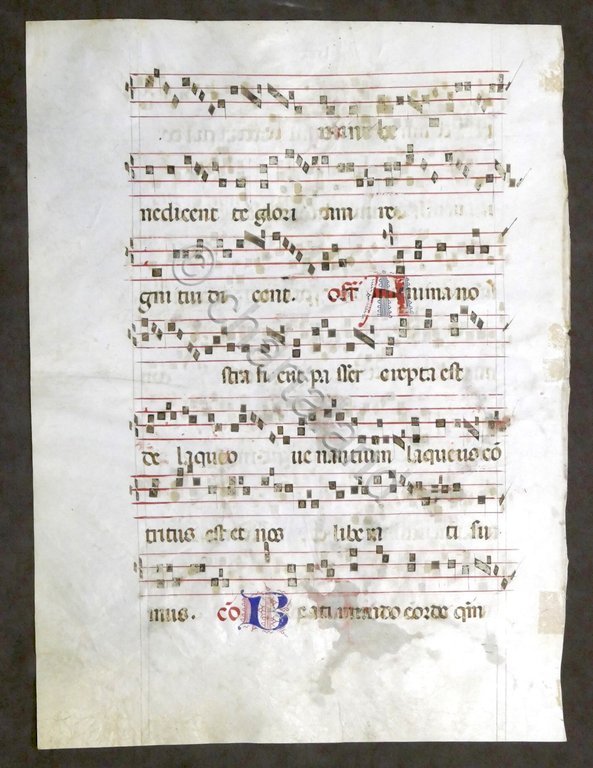 nedicent te glori am re
gni tui di cent. off Anima no
stra si cut pa sser erepta est
de laqueo ue nantium laqueus cō
tritus est et nos libera ti su
mus. cō Beati mundo corde qm